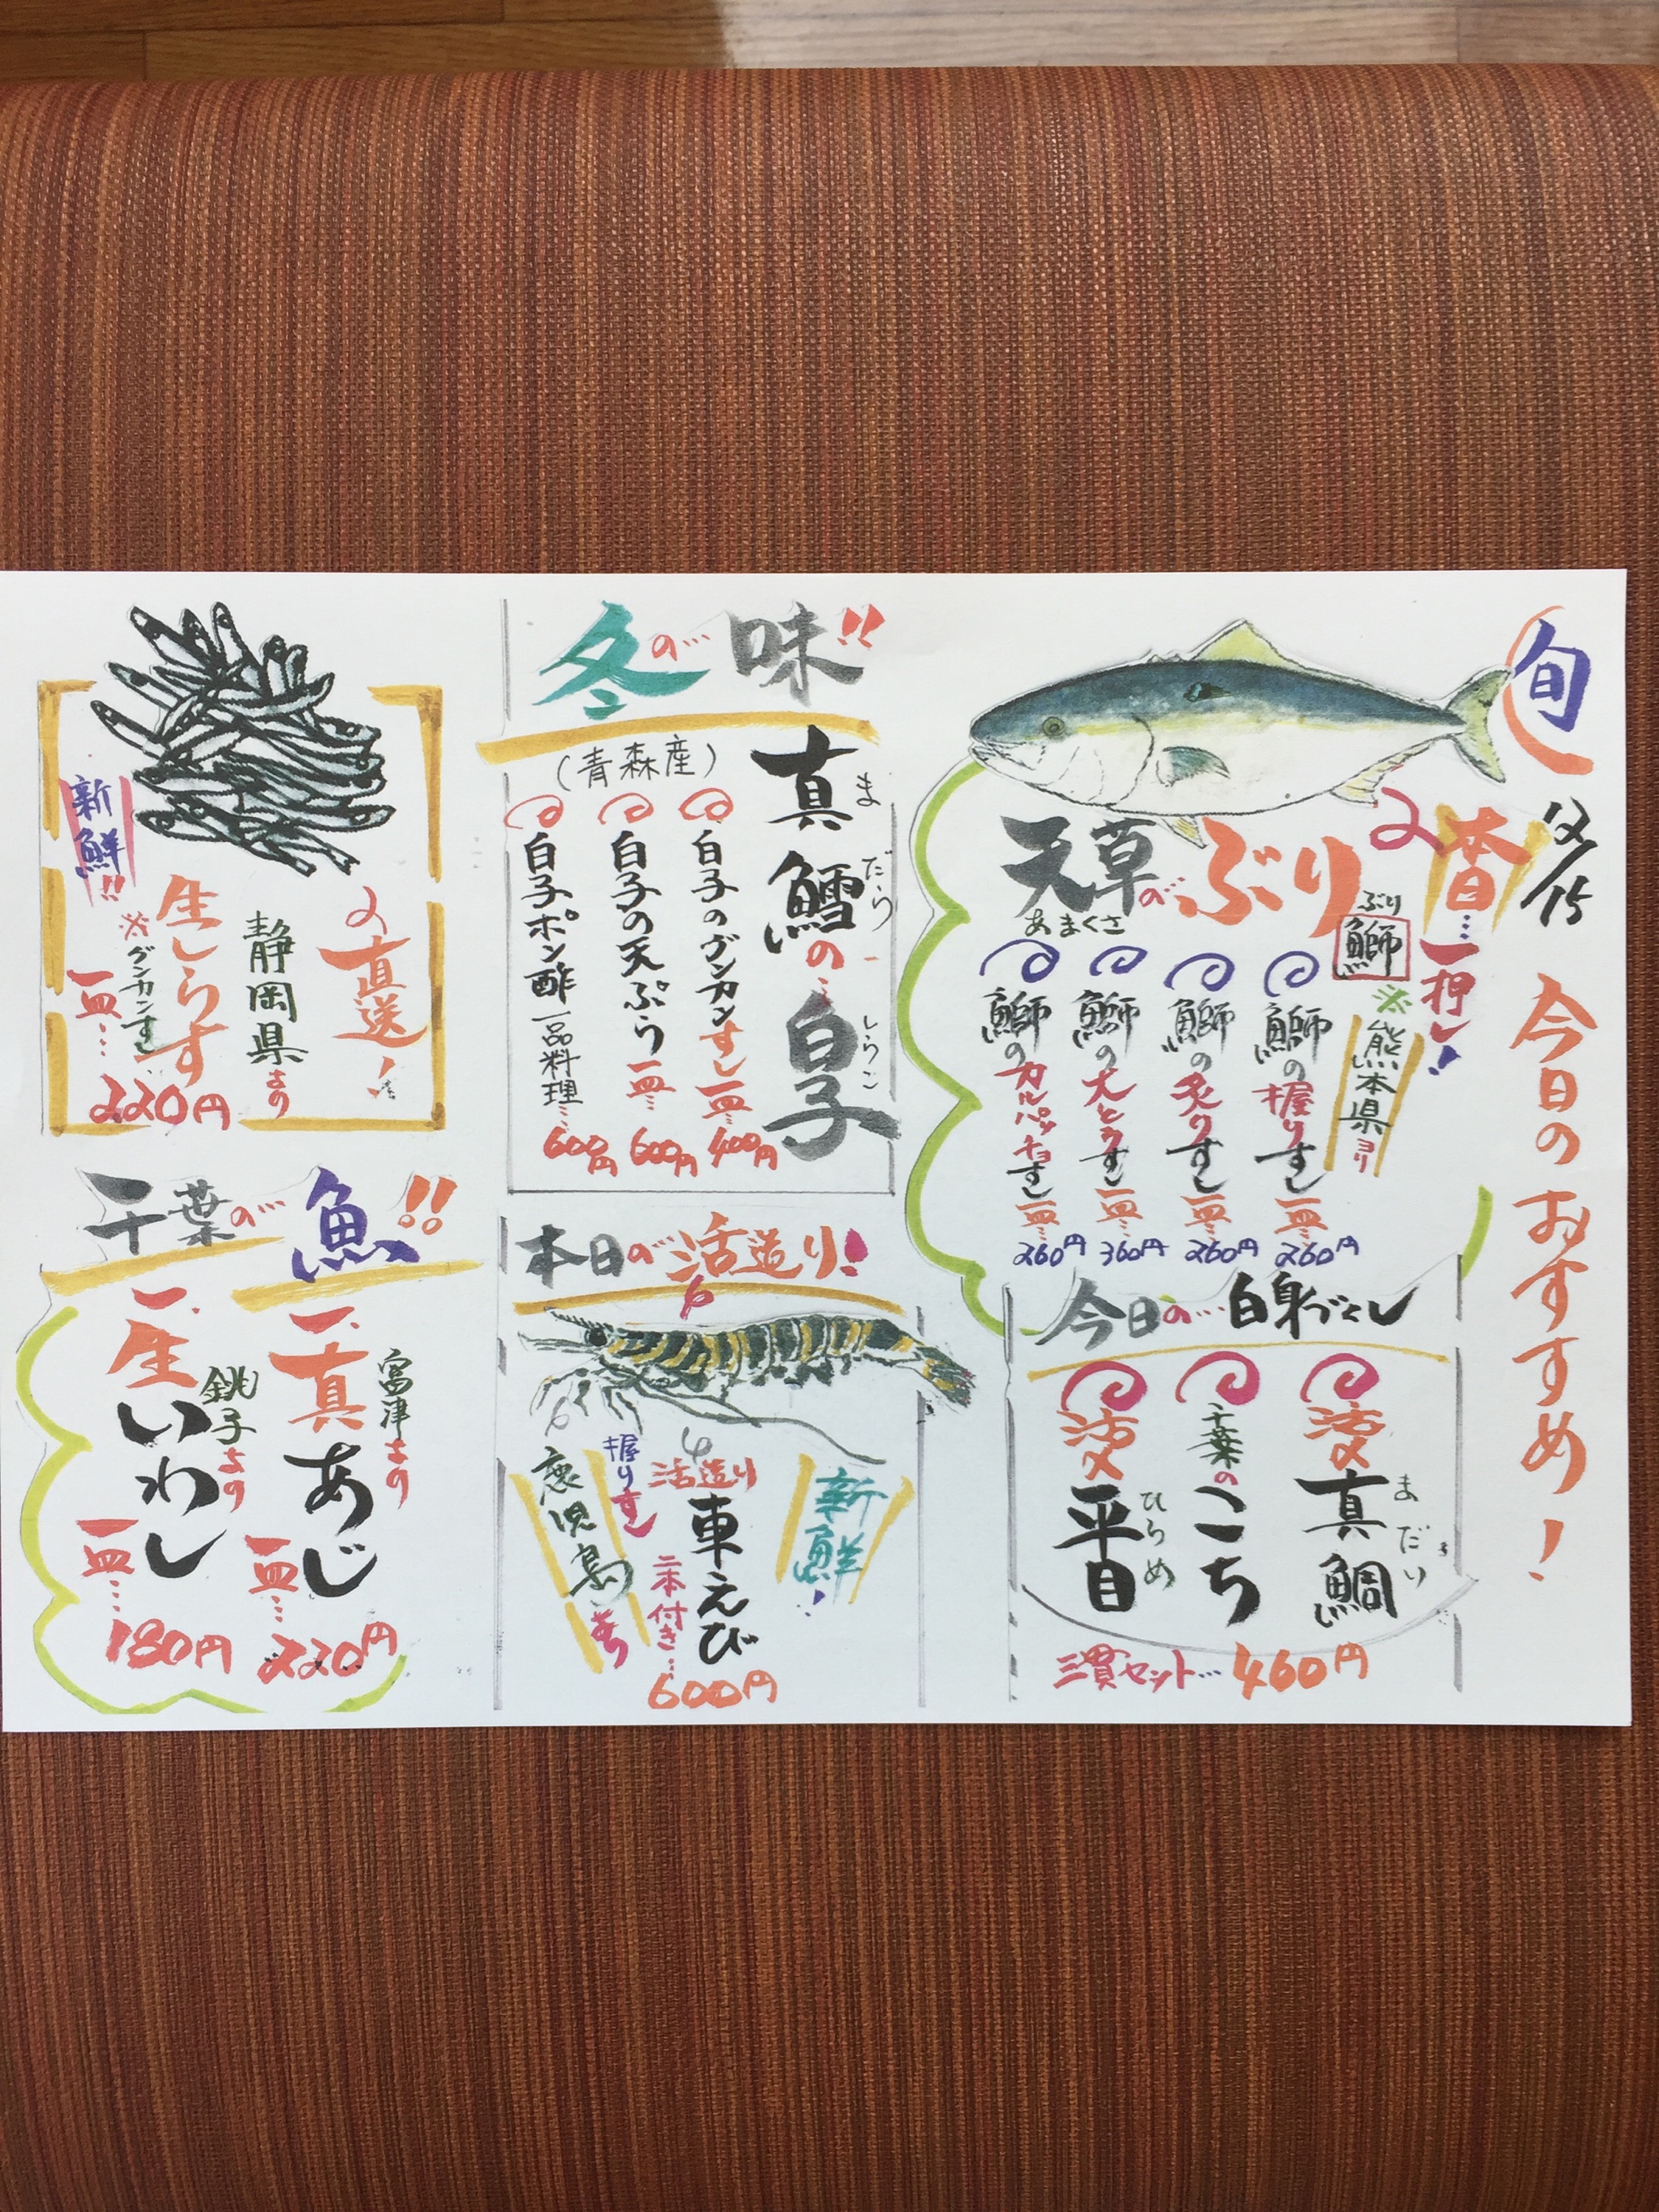 旬
12/15
今日のおすすめ!
本日…一押し!
天草のぶり
あまくさ
ぶり
鰤
※熊本県ヨリ
鰤の握りすし一皿…260円
鰤の炙りすし一皿…260円
鰤の大とろすし一皿…360円
鰤のカルパッチョすし一皿…260円
今日の…白身づくし
活〆真鯛
まだい
千葉のこち
活〆平目
ひらめ
三貫セット…460円
冬の…味!!
真鱈の…白子
まだら
しらこ
(青森産)
白子のグンカンすし一皿…400円
白子の天ぷら一皿…600円
白子ポン酢一品料理…600円
本日の活造り!
新鮮!
活造り
車えび
握りすし
二本付き…600円
鹿児島より
直送!
静岡県より
生しらす
※グンカンすし
新鮮!!
一皿…220円
千葉の魚!!
富津より
一、真あじ
一皿…220円
銚子より
一、生いわし
一皿…180円